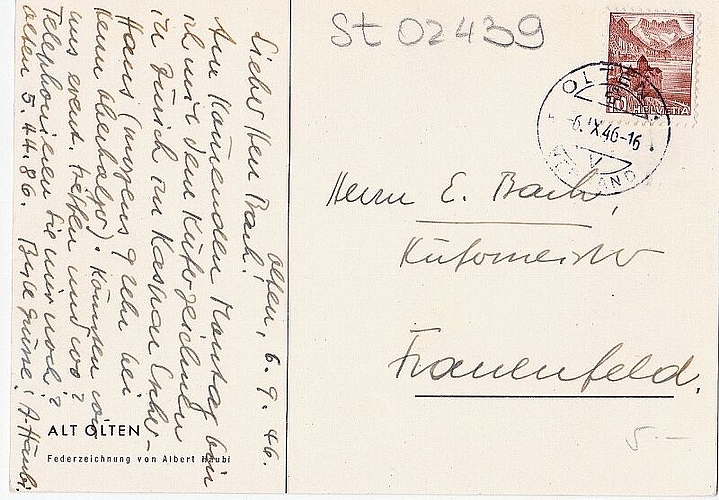 St 02439
HELVETIA
10
OLTEN
-6.IX.46-16
VERSAND
Herrn E. Bach,
Küfermeister
Frauenfeld,
5.-
Olten, 6.9.46.
Lieber Herr Bach!
Am kommenden Montag bin
ich mit dem Küferzeichnen
in Zürich im Kaspar Escher-
Haus (morgens 9 Uhr bei
Herrn Oberholzer). Können wir
uns event. treffen und wo?
Telephonieren Sie mir noch?
Olten 5.44.86. Beste Grüsse! A. Häubi.
ALT OLTEN
Federzeichnung von Albert Häubi